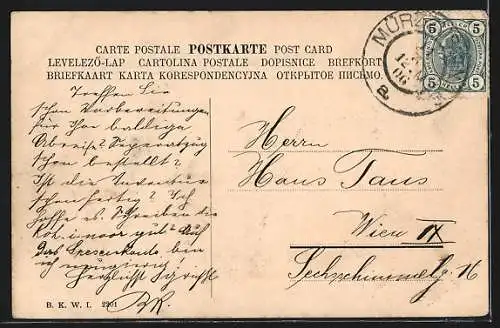 CARTE POSTALE POSTKARTE POST CARD
LEVELEZŐ-LAP CARTOLINA POSTALE DOPISNICE BREFKORT
BRIEFKAART KARTA KORESPONDENCYJNA ОТКРЫТОЕ ПИСЬМО.
MÜRZ
5 5
5 5
06
a
Treffen Sie
schon Vorbereitungen
für Ihre baldige
Abreise? Separatzug
schon bestellt?
Ist die
schon fertig? Ich
hoffe es. Schreiben Sie
gut? Auf
das bin
ich neugierig!
Herzlichst
Herrn
Hans Taus
Wien IX
Sechsschimmelg. 16
B. K. W. I. 2201